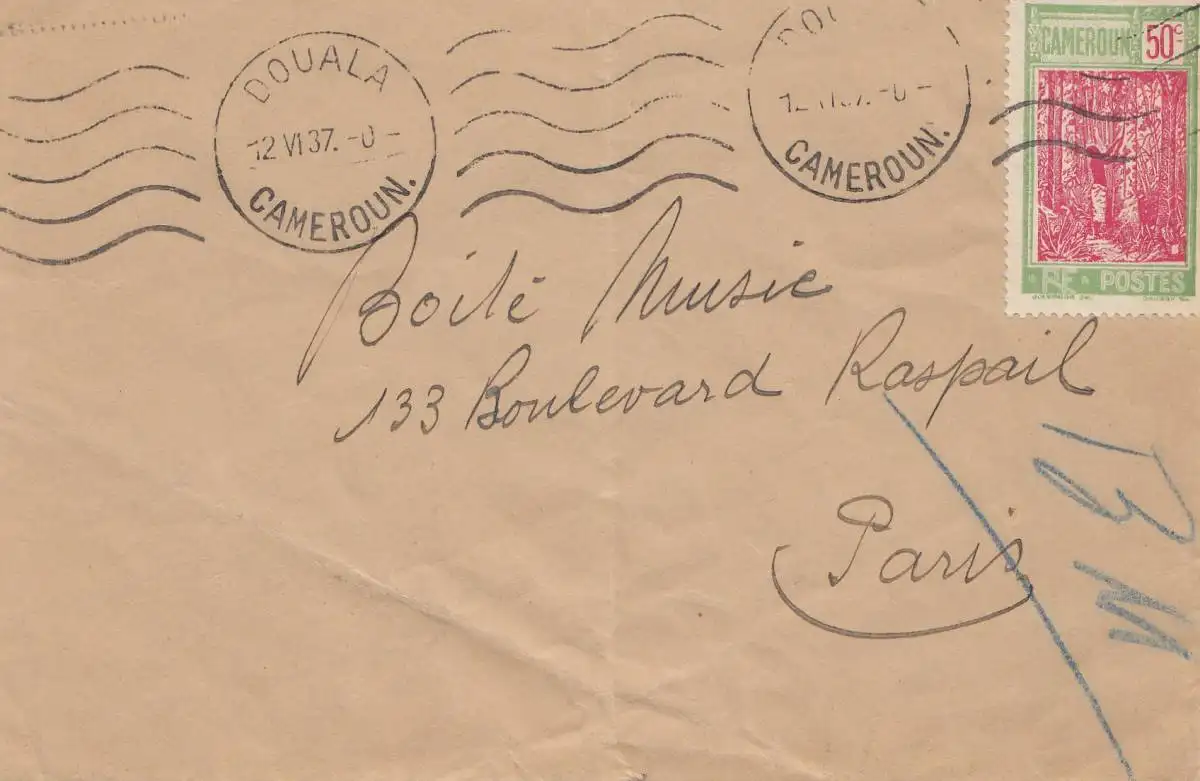 DOUALA
12 VI 37. - 0 -
CAMEROUN.
CAMEROUN.
CAMEROUN 50c
RF POSTES
Boite Music
133 Boulevard Raspail
Paris